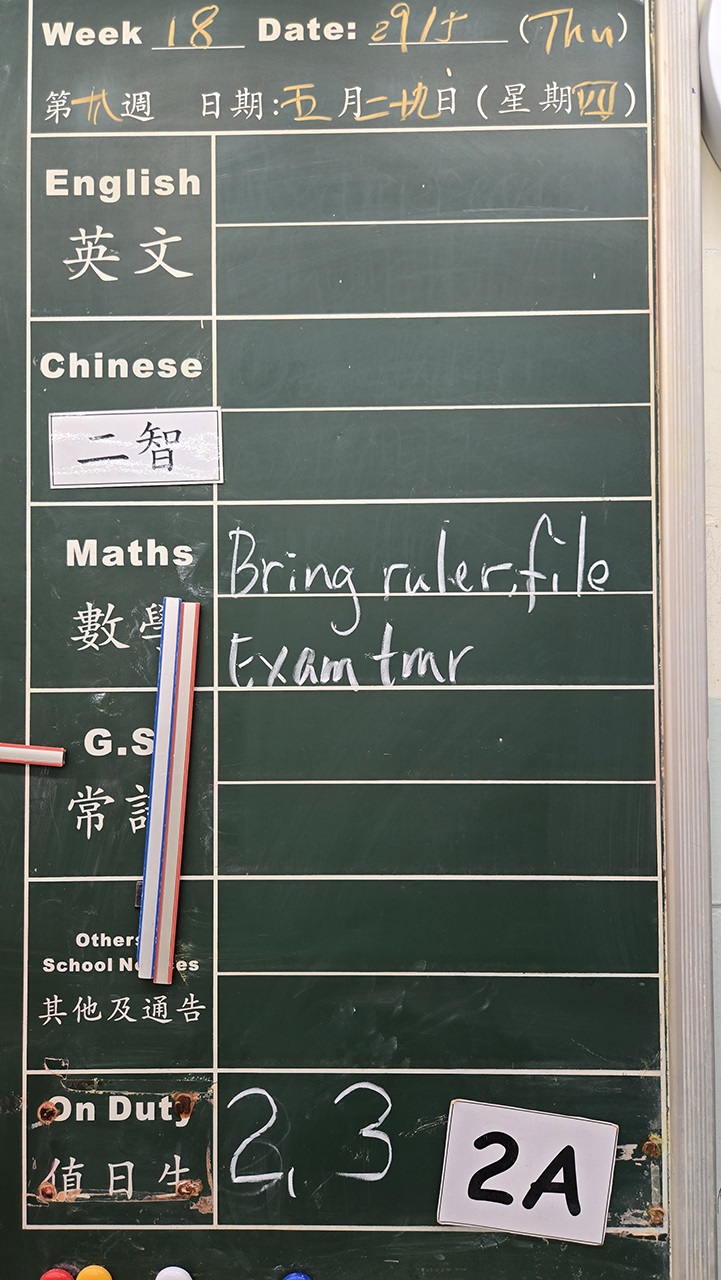 Week 18 Date: 29/5 (Thu)
第十八週 日期:五月二十九日(星期四)
English
英文
Chinese
二智
Maths
Bring ruler, file
數學
Exam tmr
G.S
常
Others
School No ces
其他及通告
On Duty
2, 3
值日生
2A